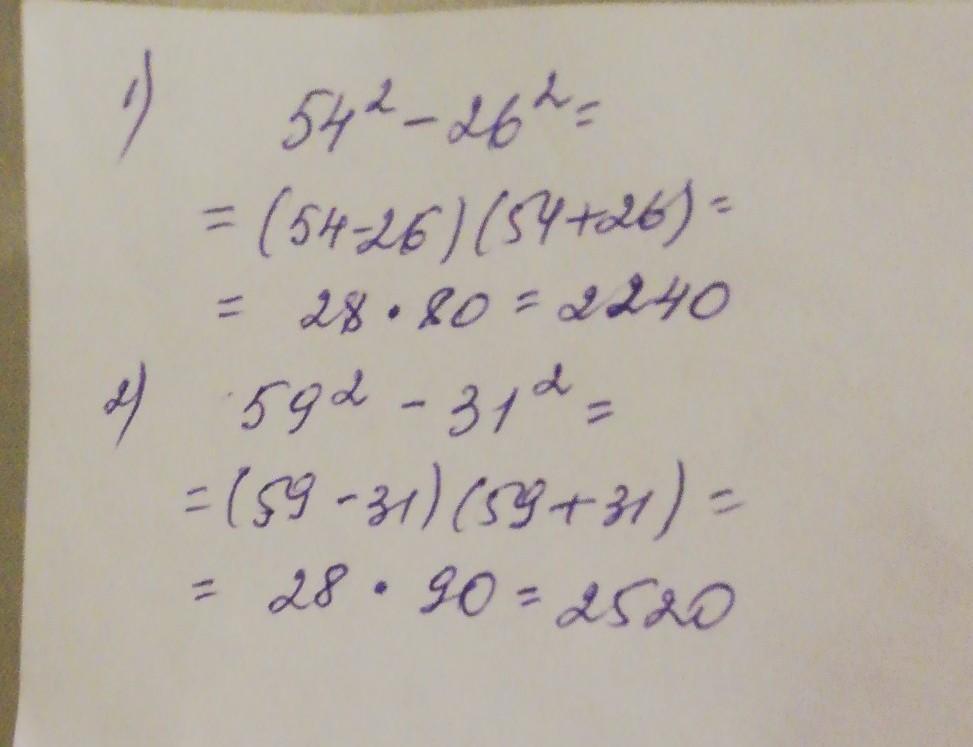 1) 54² - 26² =
= (54-26)(54+26) =
= 28 · 80 = 2240
2) 59² - 31² =
= (59 - 31)(59 + 31) =
= 28 · 90 = 2520